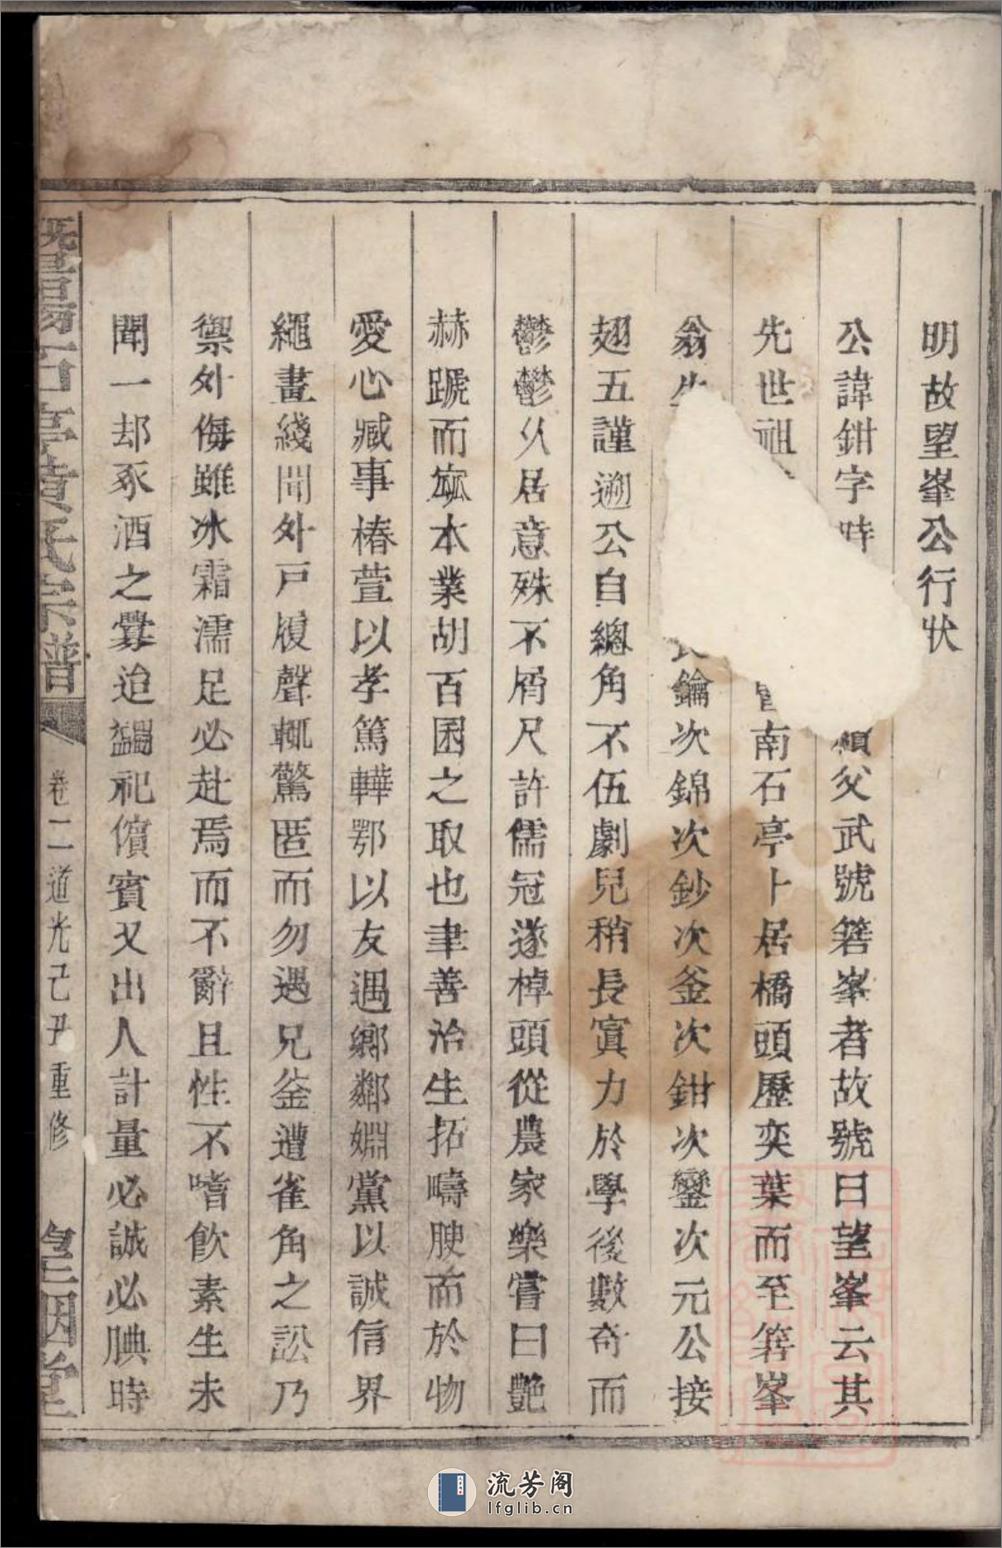 明故望峯公行狀
公諱鉗字時父武號箬峯者故號曰望峯云其
先世祖南石亭卜居橋頭歷奕葉而至箬峯
翁生鑰次錦次鈔次釜次鉗次鑾次元公接
翅五謹遡公自總角不伍劇兒稍長寘力於學後數奇而
鬱鬱乆居意殊不屑尺許儒冠遂棹頭從農家樂嘗曰艷
赫蹏而寙本業胡百困之取也聿善治生拓疇腴而於物
愛心臧事椿萱以孝篤韡鄂以友遇鄉鄰婣黨以誠信界
繩畫綫聞外戸履聲輒驚匿而勿遇兄釜遭雀角之訟乃
禦外侮雖冰霜濡足必赴焉而不辭且性不嗜飮素生未
聞一刦豕酒之釁迨蠲祀儐賓又出人計量必誠必腆時
暨陽石亭黃氏宗譜
卷二道光己丑重修
皇烟堂
流芳阁
lfglib.cn